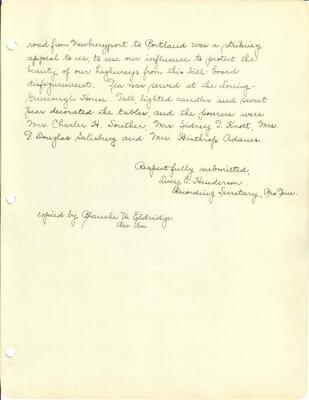 road from Newburyport to Portland was a striking
appeal to us, to use our influence to protect the
beauty of our highways from this bill-board
disfigurement. Tea was served at the Loring-
Greenough House. Tall lighted candles and sweet
peas decorated the tables, and the pourers were
Mrs. Charles H. Souther, Mrs. Sidney T. Knott, Mrs.
F. Douglas Salisbury and Mrs. Winthrop Adams.
Respectfully submitted,
Lucy E. Henderson
Recording Secretary, Pro Tem.
copied by Blanche W. Eldridge
Rec. Sec.